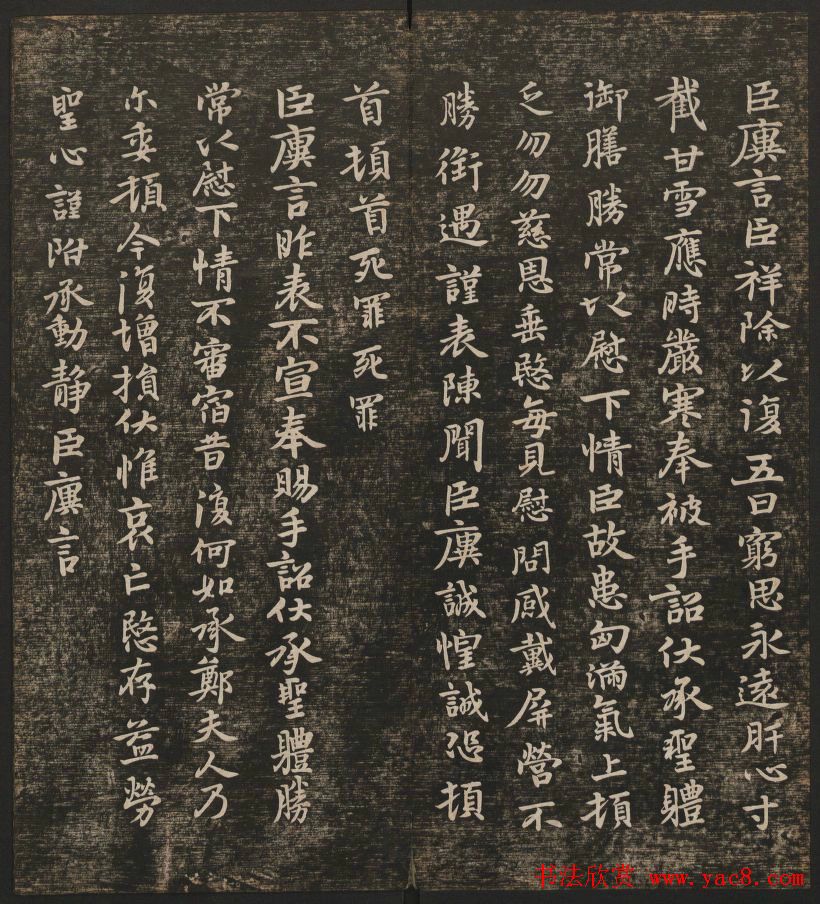 臣廙言臣祥除以復五日窮思永遠肝心寸
截甘雪應時嚴寒奉被手詔伏承聖體
御膳勝常以慰下情臣故患匈滿氣上頓
乏勿勿慈恩垂愍每見慰問感戴屏營不
勝銜遇謹表陳聞臣廙誠惶誠恐頓
首頓首死罪死罪
臣廙言昨表不宣奉賜手詔伏承聖體勝
常以慰下情不審宿昔復何如承鄭夫人乃
尒委頓今復增損伏惟哀亡愍存益勞
聖心謹附承動靜臣廙言
书法欣赏 www.yac8.com